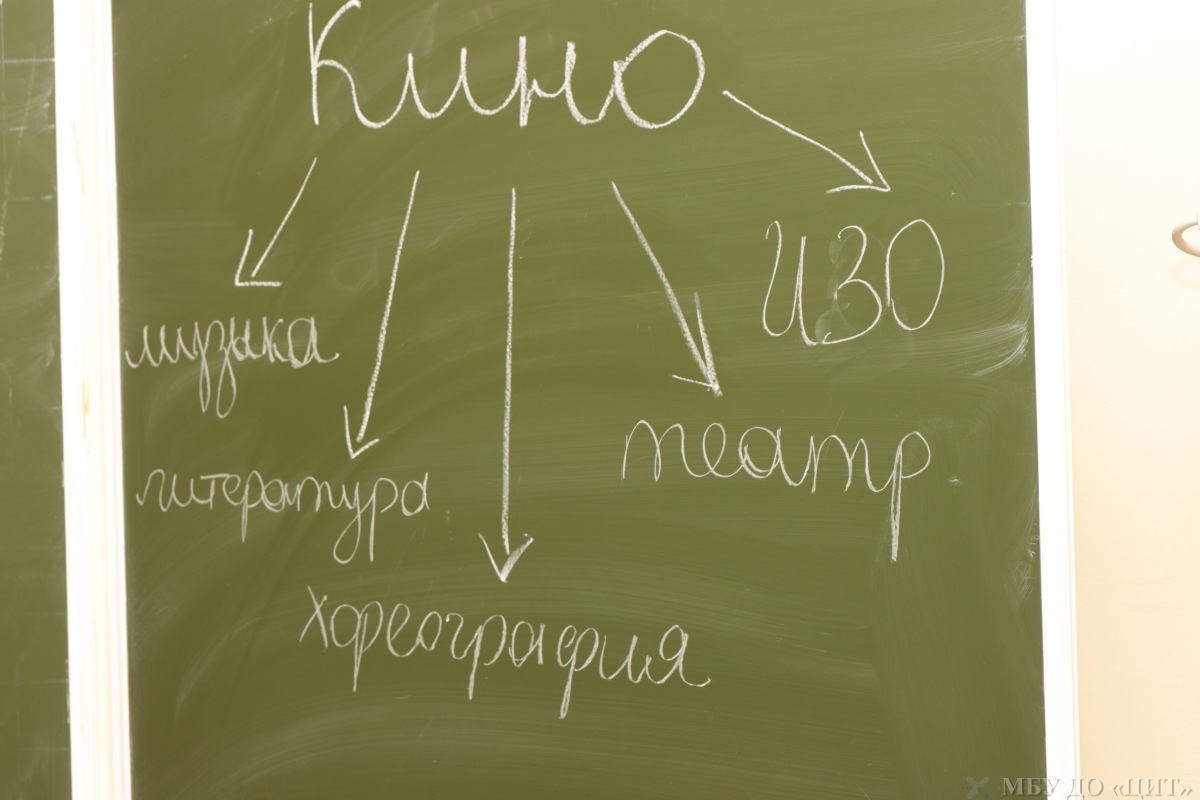 Кино
ИЗО
музыка
театр
литература
хореография
МБУ ДО «ЦИТ»